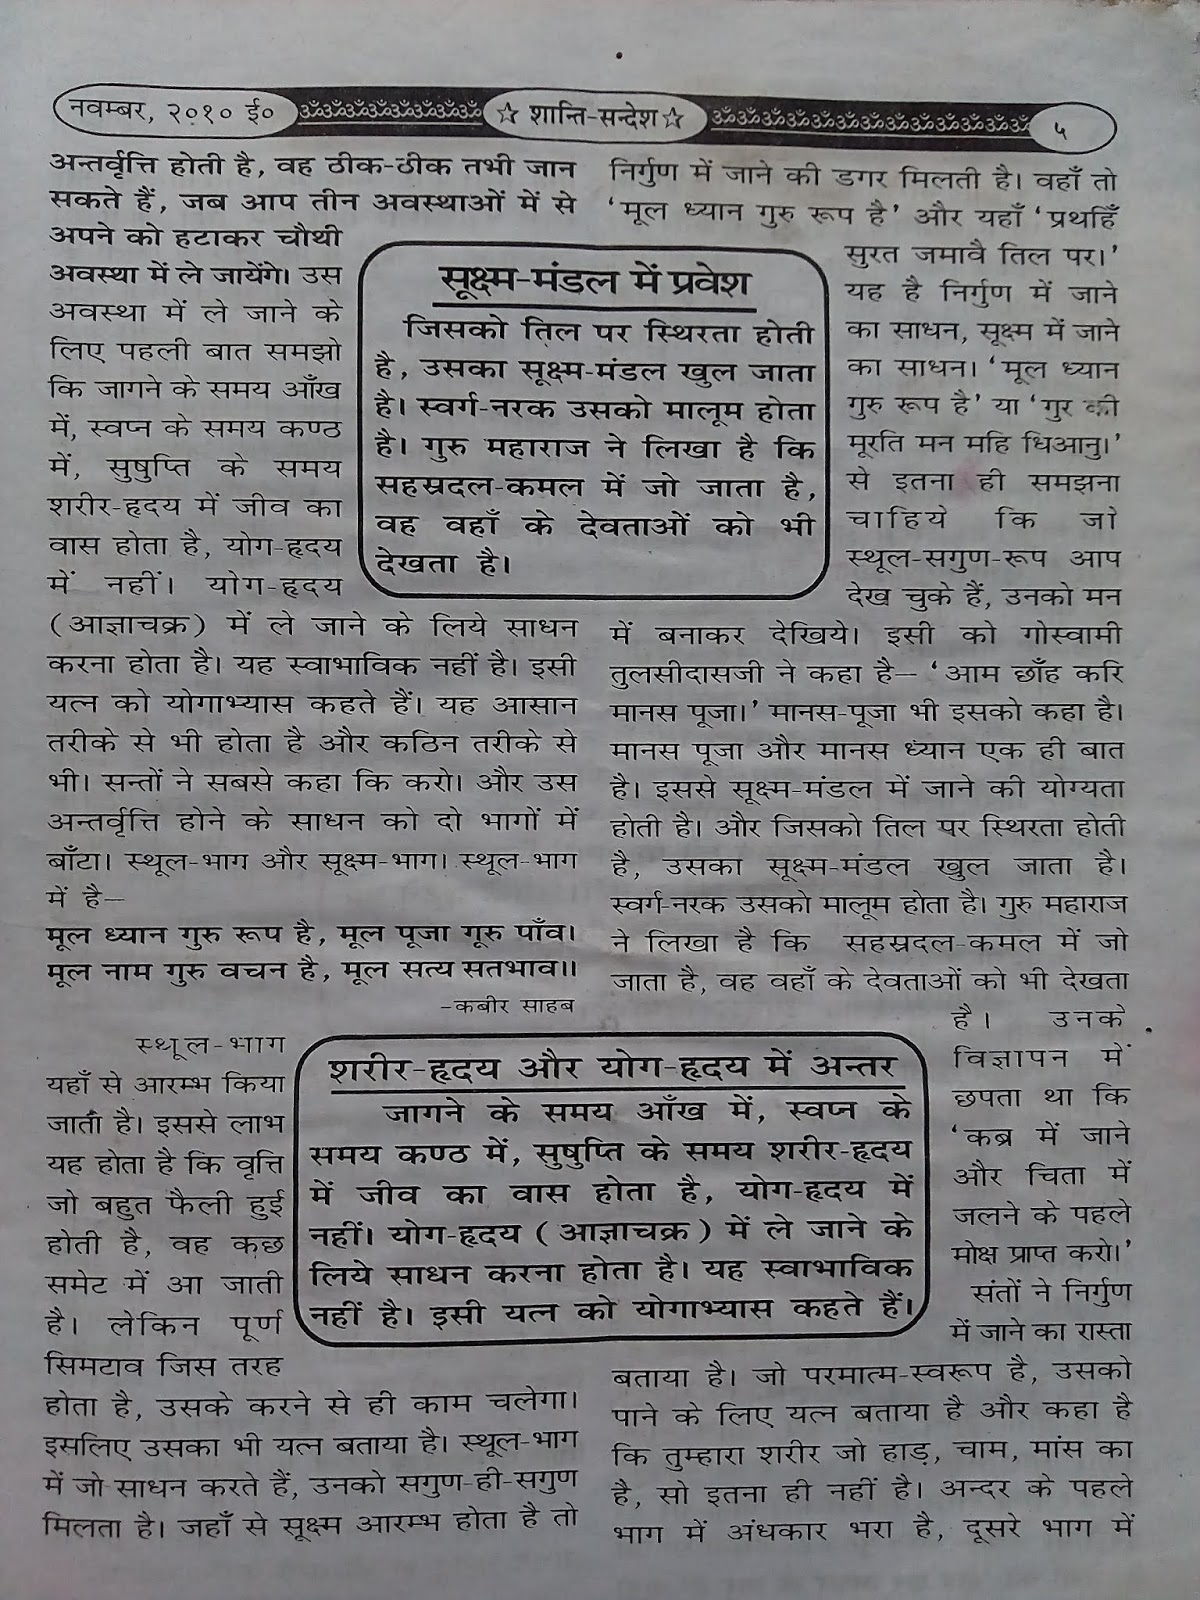 नवम्बर, २०१० ई०
ॐॐॐॐॐॐॐॐॐ
☆ शान्ति-सन्देश☆
ॐॐॐॐॐॐॐॐॐॐॐॐॐॐॐ
५
अन्तर्वृत्ति होती है, वह ठीक-ठीक तभी जान
सकते हैं, जब आप तीन अवस्थाओं में से
अपने को हटाकर चौथी
अवस्था में ले जायेंगे। उस
अवस्था में ले जाने के
लिए पहली बात समझो
कि जागने के समय आँख
में, स्वप्न के समय कण्ठ
में, सुषुप्ति के समय
शरीर-हृदय में जीव का
वास होता है, योग-हृदय
में नहीं। योग-हृदय
(आज्ञाचक्र) में ले जाने के लिये साधन
करना होता है। यह स्वाभाविक नहीं है। इसी
यत्न को योगाभ्यास कहते हैं। यह आसान
तरीके से भी होता है और कठिन तरीके से
भी। सन्तों ने सबसे कहा कि करो। और उस
अन्तर्वृत्ति होने के साधन को दो भागों में
बाँटा। स्थूल-भाग और सूक्ष्म-भाग। स्थूल-भाग
में है—
मूल ध्यान गुरु रूप है, मूल पूजा गूरु पाँव।
मूल नाम गुरु वचन है, मूल सत्य सतभाव।।
-कबीर साहब
स्थूल-भाग
यहाँ से आरम्भ किया
जाता है। इससे लाभ
यह होता है कि वृत्ति
जो बहुत फैली हुई
होती है, वह कुछ
समेट में आ जाती
है। लेकिन पूर्ण
सिमटाव जिस तरह
होता है, उसके करने से ही काम चलेगा।
इसलिए उसका भी यत्न बताया है। स्थूल-भाग
में जो साधन करते हैं, उनको सगुण-ही-सगुण
मिलता है। जहाँ से सूक्ष्म आरम्भ होता है तो
सूक्ष्म-मंडल में प्रवेश
जिसको तिल पर स्थिरता होती
है, उसका सूक्ष्म-मंडल खुल जाता
है। स्वर्ग-नरक उसको मालूम होता
है। गुरु महाराज ने लिखा है कि
सहस्रदल-कमल में जो जाता है,
वह वहाँ के देवताओं को भी
देखता है।
शरीर-हृदय और योग-हृदय में अन्तर
जागने के समय आँख में, स्वप्न के
समय कण्ठ में, सुषुप्ति के समय शरीर-हृदय
में जीव का वास होता है, योग-हृदय में
नहीं। योग-हृदय (आज्ञाचक्र) में ले जाने के
लिये साधन करना होता है। यह स्वाभाविक
नहीं है। इसी यत्न को योगाभ्यास कहते हैं।
निर्गुण में जाने की डगर मिलती है। वहाँ तो
‘मूल ध्यान गुरु रूप है’ और यहाँ ‘प्रथहिँ
सुरत जमावै तिल पर।’
यह है निर्गुण में जाने
का साधन, सूक्ष्म में जाने
का साधन। ‘मूल ध्यान
गुरु रूप है’ या ‘गुर की
मूरति मन महि धिआनु।’
से इतना ही समझना
चाहिये कि जो
स्थूल-सगुण-रूप आप
देख चुके हैं, उनको मन
में बनाकर देखिये। इसी को गोस्वामी
तुलसीदासजी ने कहा है— ‘आम छाँह करि
मानस पूजा।’ मानस-पूजा भी इसको कहा है।
मानस पूजा और मानस ध्यान एक ही बात
है। इससे सूक्ष्म-मंडल में जाने की योग्यता
होती है। और जिसको तिल पर स्थिरता होती
है, उसका सूक्ष्म-मंडल खुल जाता है।
स्वर्ग-नरक उसको मालूम होता है। गुरु महाराज
ने लिखा है कि सहस्रदल-कमल में जो
जाता है, वह वहाँ के देवताओं को भी देखता
है। उनके
विज्ञापन में
छपता था कि
‘कब्र में जाने
और चिता में
जलने के पहले
मोक्ष प्राप्त करो।’
संतों ने निर्गुण
में जाने का रास्ता
बताया है। जो परमात्म-स्वरूप है, उसको
पाने के लिए यत्न बताया है और कहा है
कि तुम्हारा शरीर जो हाड़, चाम, मांस का
है, सो इतना ही नहीं है। अन्दर के पहले
भाग में अंधकार भरा है, दूसरे भाग में